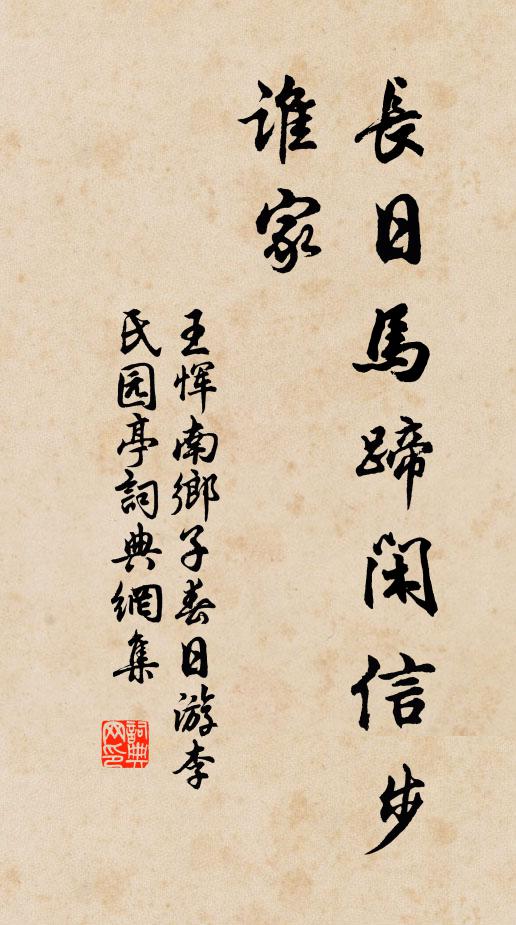 長日馬蹄閑信步
誰家
王恽南鄉子春日游李
氏园亭詞典網集
詞典
网印